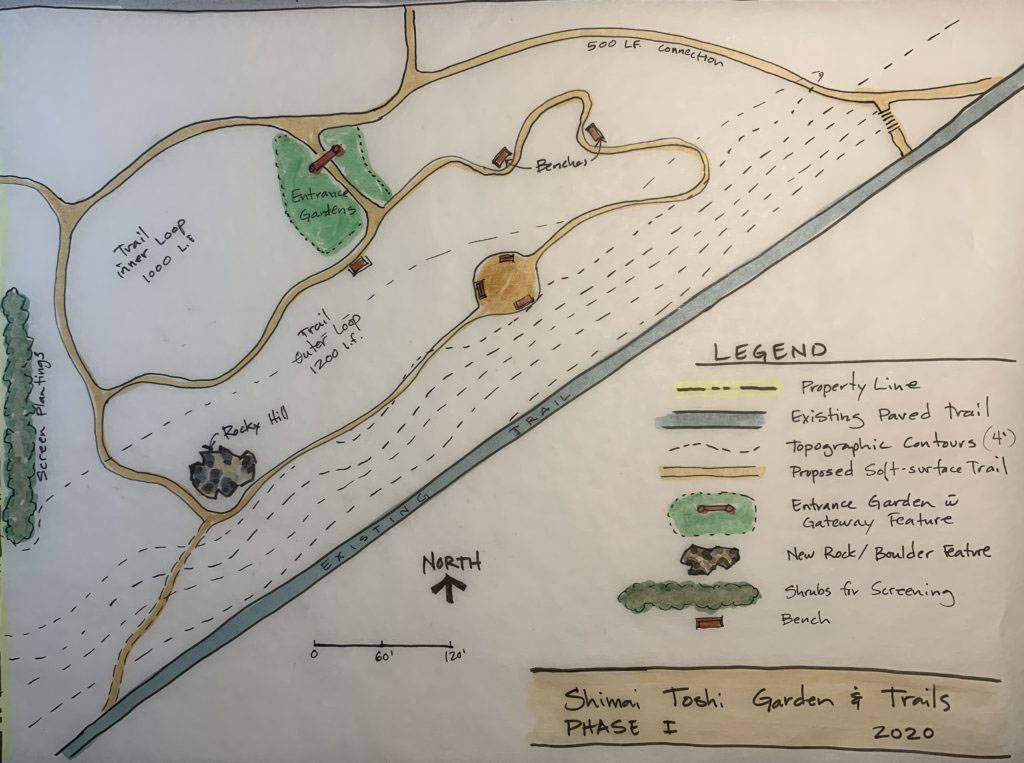 500 L.F. connection
Benches
Entrance
Gardens
Trail
inner Loop
1000 L.F
Trail
outer Loop
1200 l.f.
Screen Plantings
Rocky Hill
EXISTING TRAIL
NORTH
0 60' 120'
LEGEND
Property Line
Existing Paved Trail
Topographic Contours (4')
Proposed Soft-surface Trail
Entrance Garden w̄
Gateway Feature
New Rock/Boulder Feature
Shrubs for Screening
Bench
Shimai Toshi Garden & Trails
PHASE I 2020